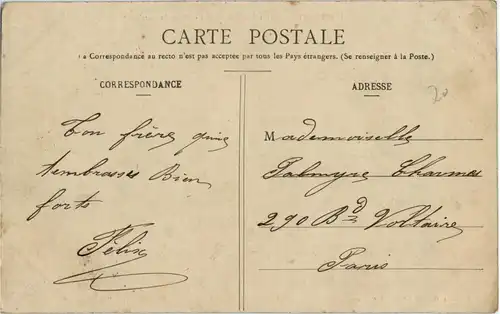 CARTE POSTALE
La Correspondance au recto n'est pas acceptée par tous les Pays étrangers. (Se renseigner à la Poste.)
CORRESPONDANCE
Ton frère qui
tembrasses Bien
forts
Félix
ADRESSE
20
Mademoiselle
Palmyre Charmes
290 Bd Voltaire
Paris